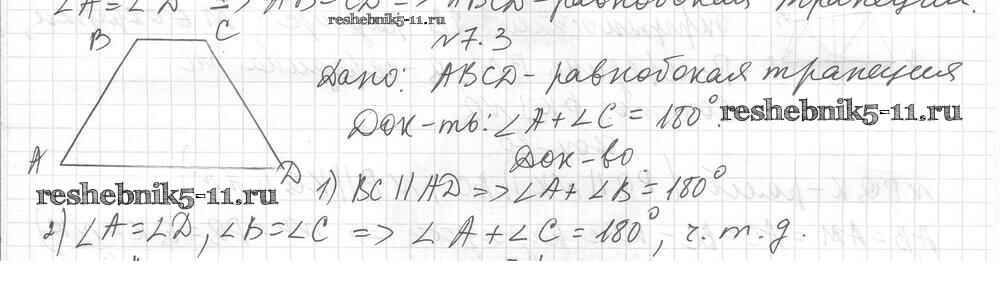 ∠A = ∠D => AB = CD => ABCD - равнобокая трапеция.
reshebnik5-11.ru
B C
№7.3
Дано: ABCD - равнобокая трапеция
Док-ть: ∠A + ∠C = 180°.
reshebnik5-11.ru
Док-во
A D
reshebnik5-11.ru
1) BC || AD => ∠A + ∠B = 180°
2) ∠A = ∠D, ∠B = ∠C => ∠A + ∠C = 180°, ч.т.д.